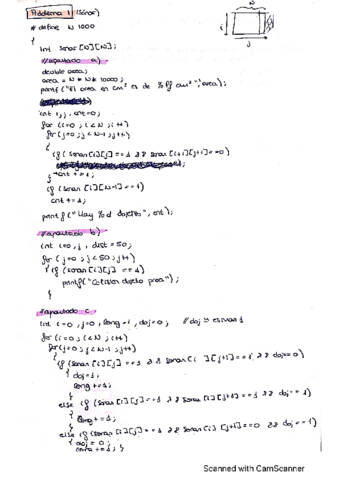 Problema 1 (Sónar)
N
i
j
# define N 1000
{
int sonar [N][N];
//apartado a)
double area;
area = N * N * 10000;
printf("El area en cm² es de %lf cm²", area);
int i, j, cnt=0;
for (i=0; i<N; i++)
for (j=0; j<N-1; j++)
{
if (sonar [i][j]==1 && sonar [i][j+1]==0)
cnt +=1;
}
if (sonar [i][N-1]==1)
cnt +=1;
printf("Hay %d objetos", cnt);
//apartado b)
int i=0, j, dist=50;
for (j=0; j<50; j++)
{ if (sonar [i][j] ==1)
printf("
}
//apartado c
int i=0, j=0, long=1, doj=0; //doj
for (i=0; i<N; i++)
for (j=0; j<N-1; j++)
{ if (sonar [i][j]==1 && sonar [i][j+1]==1 && doj==0)
{ doj=1;
long +=1;
else if (sonar [i][j]==1 && sonar [i][j+1]==1 && doj==1)
{
long +=1; }
else if (sonar [i][j]==1 && sonar [i][j+1]==0 && doj==1)
{ doj = 0;
+=1; }
Scanned with CamScanner